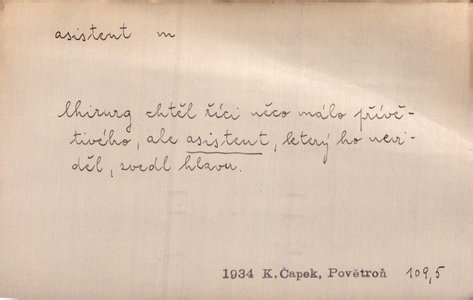 asistent m
Chirurg chtěl říci něco málo přívě-
tivého, ale asistent, který ho nevi-
děl, zvedl hlavu.
1934 K. Čapek, Povětroň 109,5